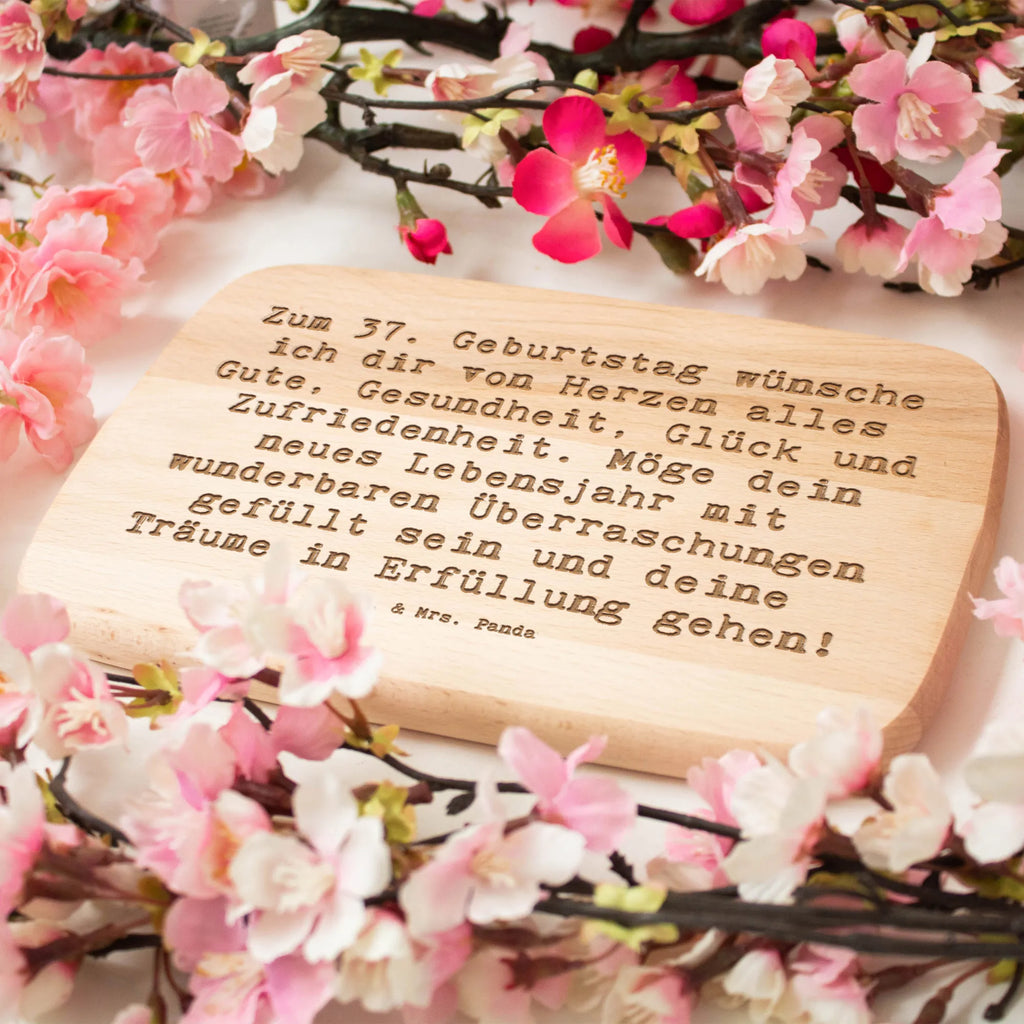 Zum 37. Geburtstag wünsche
ich dir von Herzen alles
Gute, Gesundheit, Glück und
Zufriedenheit. Möge dein
neues Lebensjahr mit
wunderbaren Überraschungen
gefüllt sein und deine
Träume in Erfüllung gehen!
& Mrs. Panda